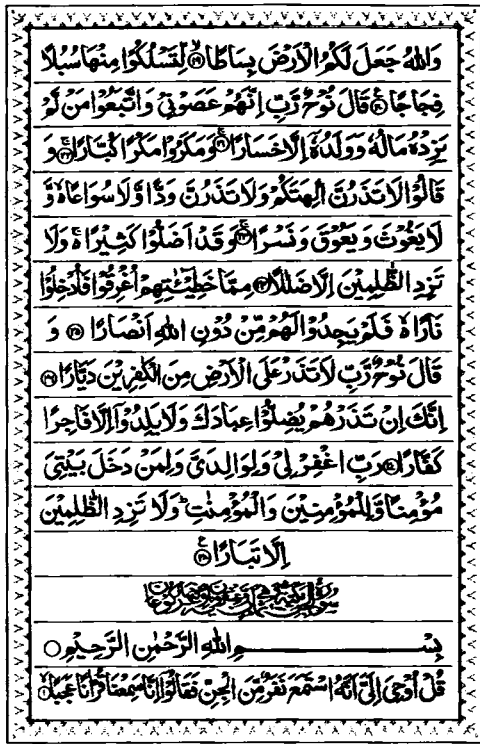 وَاللّٰهُ جَعَلَ لَكُمُ الْاَرْضَ بِسَاطًا ﴿۱۹﴾ لِّتَسْلُكُوْا مِنْهَا سُبُلًا
فِجَاجًا ﴿۲۰﴾ قَالَ نُوْحٌ رَّبِّ اِنَّهُمْ عَصَوْنِيْ وَاتَّبَعُوْا مَنْ لَّمْ
يَزِدْهُ مَالُهٗ وَوَلَدُهٗۤ اِلَّا خَسَارًا ﴿۲۱﴾ وَمَكَرُوْا مَكْرًا كُبَّارًا ﴿۲۲﴾ وَ
قَالُوْا لَا تَذَرُنَّ اٰلِهَتَكُمْ وَلَا تَذَرُنَّ وَدًّا وَّلَا سُوَاعًا ۙ وَّ
لَا يَغُوْثَ وَيَعُوْقَ وَنَسْرًا ﴿۲۳﴾ وَقَدْ اَضَلُّوْا كَثِيْرًا ۚ وَلَا
تَزِدِ الظّٰلِمِيْنَ اِلَّا ضَلٰلًا ﴿۲۴﴾ مِمَّا خَطِيْٓـٰٔتِهِمْ اُغْرِقُوْا فَاُدْخِلُوْا
نَارًا ۙ فَلَمْ يَجِدُوْا لَهُمْ مِّنْ دُوْنِ اللّٰهِ اَنْصَارًا ﴿۲۵﴾ وَ
قَالَ نُوْحٌ رَّبِّ لَا تَذَرْ عَلَى الْاَرْضِ مِنَ الْكٰفِرِيْنَ دَيَّارًا ﴿۲۶﴾
اِنَّكَ اِنْ تَذَرْهُمْ يُضِلُّوْا عِبَادَكَ وَلَا يَلِدُوْۤا اِلَّا فَاجِرًا
كَفَّارًا ﴿۲۷﴾ رَبِّ اغْفِرْ لِيْ وَلِوَالِدَيَّ وَلِمَنْ دَخَلَ بَيْتِيَ
مُؤْمِنًا وَّلِلْمُؤْمِنِيْنَ وَالْمُؤْمِنٰتِ ؕ وَلَا تَزِدِ الظّٰلِمِيْنَ
اِلَّا تَبَارًا ﴿۲۸﴾
بِسْمِ اللّٰهِ الرَّحْمٰنِ الرَّحِيْمِ ○
قُلْ اُوْحِيَ اِلَيَّ اَنَّهُ اسْتَمَعَ نَفَرٌ مِّنَ الْجِنِّ فَقَالُوْۤا اِنَّا سَمِعْنَا قُرْاٰنًا عَجَبًا ﴿۱﴾